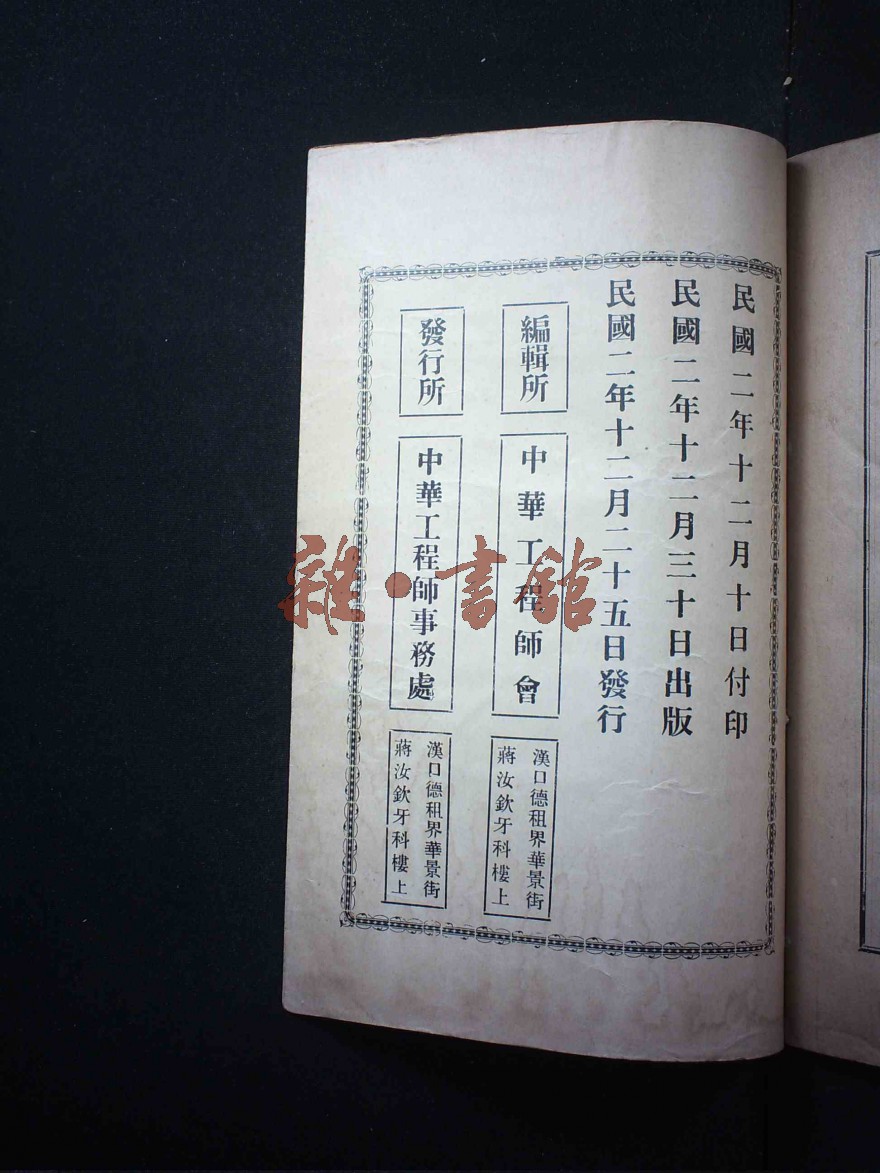 民國二年十二月十日付印
民國二年十二月三十日出版
民國二年十二月二十五日發行
編輯所
中華工程師會
漢口德租界華景街
蔣汝欽牙科樓上
發行所
中華工程師事務處
漢口德租界華景街
蔣汝欽牙科樓上
雜·書館